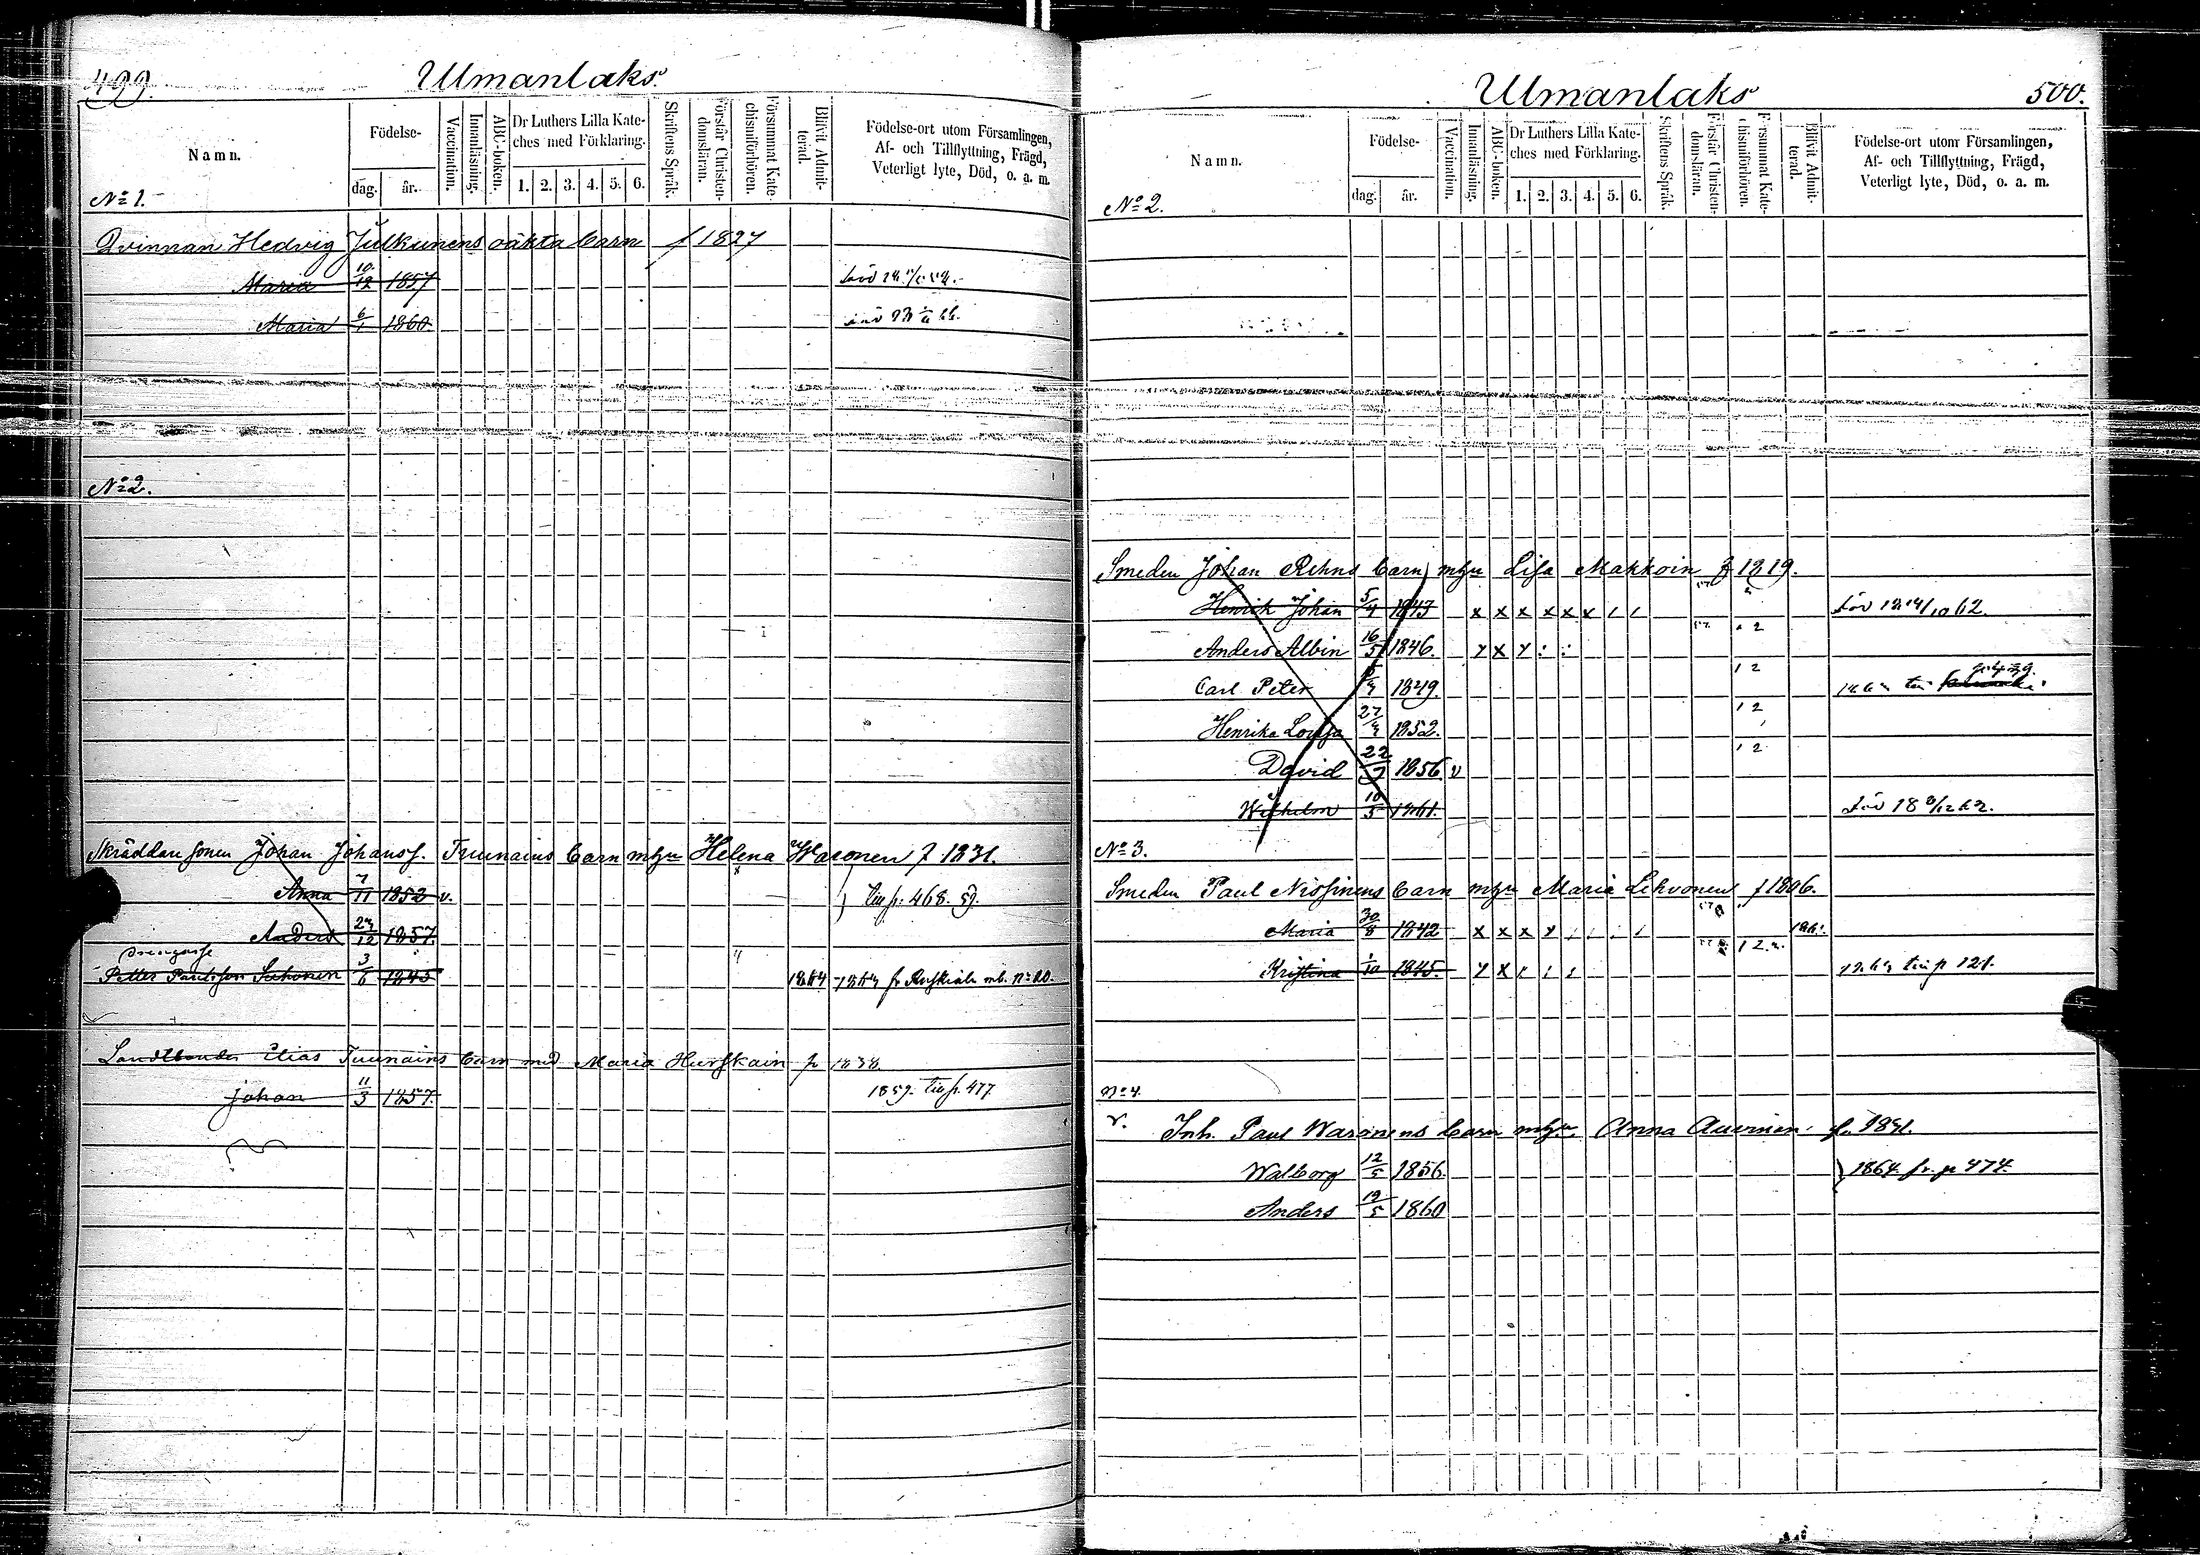 499.
Ulmanlaks.
Namn.
Födelse-
dag.
år.
Vaccination.
Innanläsning.
ABC-boken.
Dr Luthers Lilla Kate-
ches med Förklaring.
1. 2. 3. 4. 5. 6.
Skriftens Språk.
Förstår Christen-
domsläran.
Försummat Kate-
chismiförhören.
Blifvit Admit-
terad.
Födelse-ort utom Församlingen,
Af- och Tillflyttning, Frägd,
Veterligt lyte, Död, o. a. m.
No 1.
Qvinnan Hedvig Julkunens oäkta barn f 1827
Maria 10/12 1857
Maria 6/1 1860
No 2.
Skräddare sonen Johan Johanss. Tuunains barn m hu Helena Waronen f 1831.
Anna 7/11 1852 v.
Anders 27/12 1857
till p. 468. 59.
Petter Paulsson Suhonen 3/6 1845 1864
Landtbonden Elias Tuunains barn med Maria Hurskain f 1838.
Johan 11/3 1857. 1859. till p. 477.
Ulmanlaks
500.
Namn.
Födelse-
dag.
år.
Vaccination.
Innanläsning.
ABC-boken.
Dr Luthers Lilla Kate-
ches med Förklaring.
1. 2. 3. 4. 5. 6.
Skriftens Språk.
Förstår Christen-
domsläran.
Försummat Kate-
chismiförhören.
Blifvit Admit-
terad.
Födelse-ort utom Församlingen,
Af- och Tillflyttning, Frägd,
Veterligt lyte, Död, o. a. m.
No 2.
Smeden Johan Rehns barn m hu Lisa Makkoin f 1819.
Henrik Johan 5/4 1843 x x x x x x död 18 14/10 62.
Anders Albin 16/5 1846. x x x 2
Carl Peter 1849. 1 2
Henrika Lovisa 27/4 1852. 1 2
David 22/7 1856 v 1 2
Wilhelm 10/5 1861. död 18 9/12 62.
No 3.
Smeden Paul Nissinens barn m hu Maria Lehvonen f 1806.
Maria 30/8 1842 x x x x
Kristina 1/10 1845. x x till p 121.
No 4.
v. Inh. Paul Waronens barn m hu Anna Auvinen f. 1831.
Walborg 12/5 1856. 1864 fr. p 474.
Anders 19/5 1860